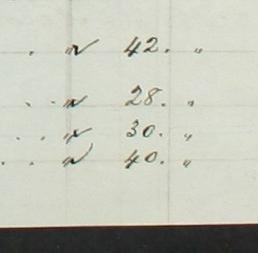 . " 42. "
. . " 28. "
. . " 30. "
. . " 40. "